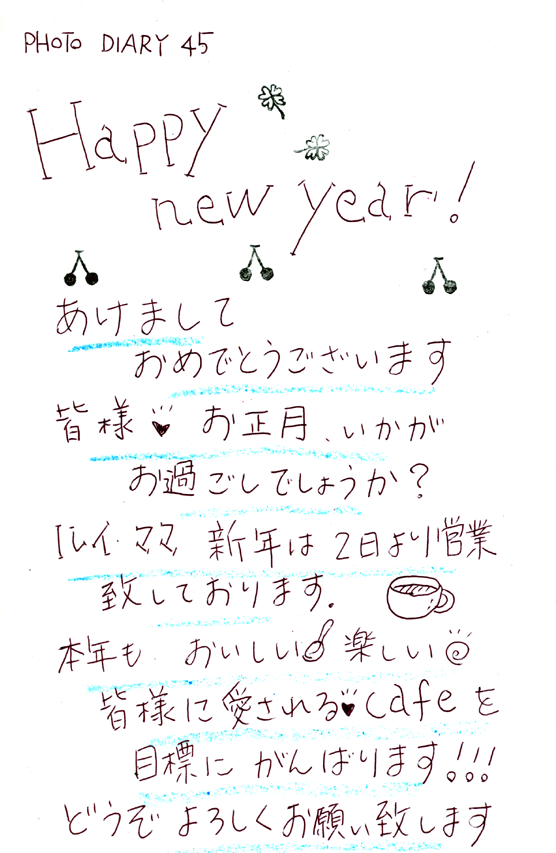 PHOTO DIARY 45
Happy
new year!
あけまして
おめでとうございます
皆様 お正月、いかが
お過ごしでしょうか?
ルイ・ママ 新年は 2日より営業
致しております.
本年も おいしい 楽しい
皆様に愛される cafeを
目標に がんばります!!!
どうぞ よろしくお願い致します